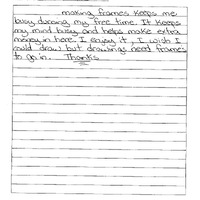 making frames keeps me
busy durning my free time. It keeps
my mind busy and helps make extra
money in here. I enjoy it, I wish I
could draw but drawlings need frames
to go in. Thanks